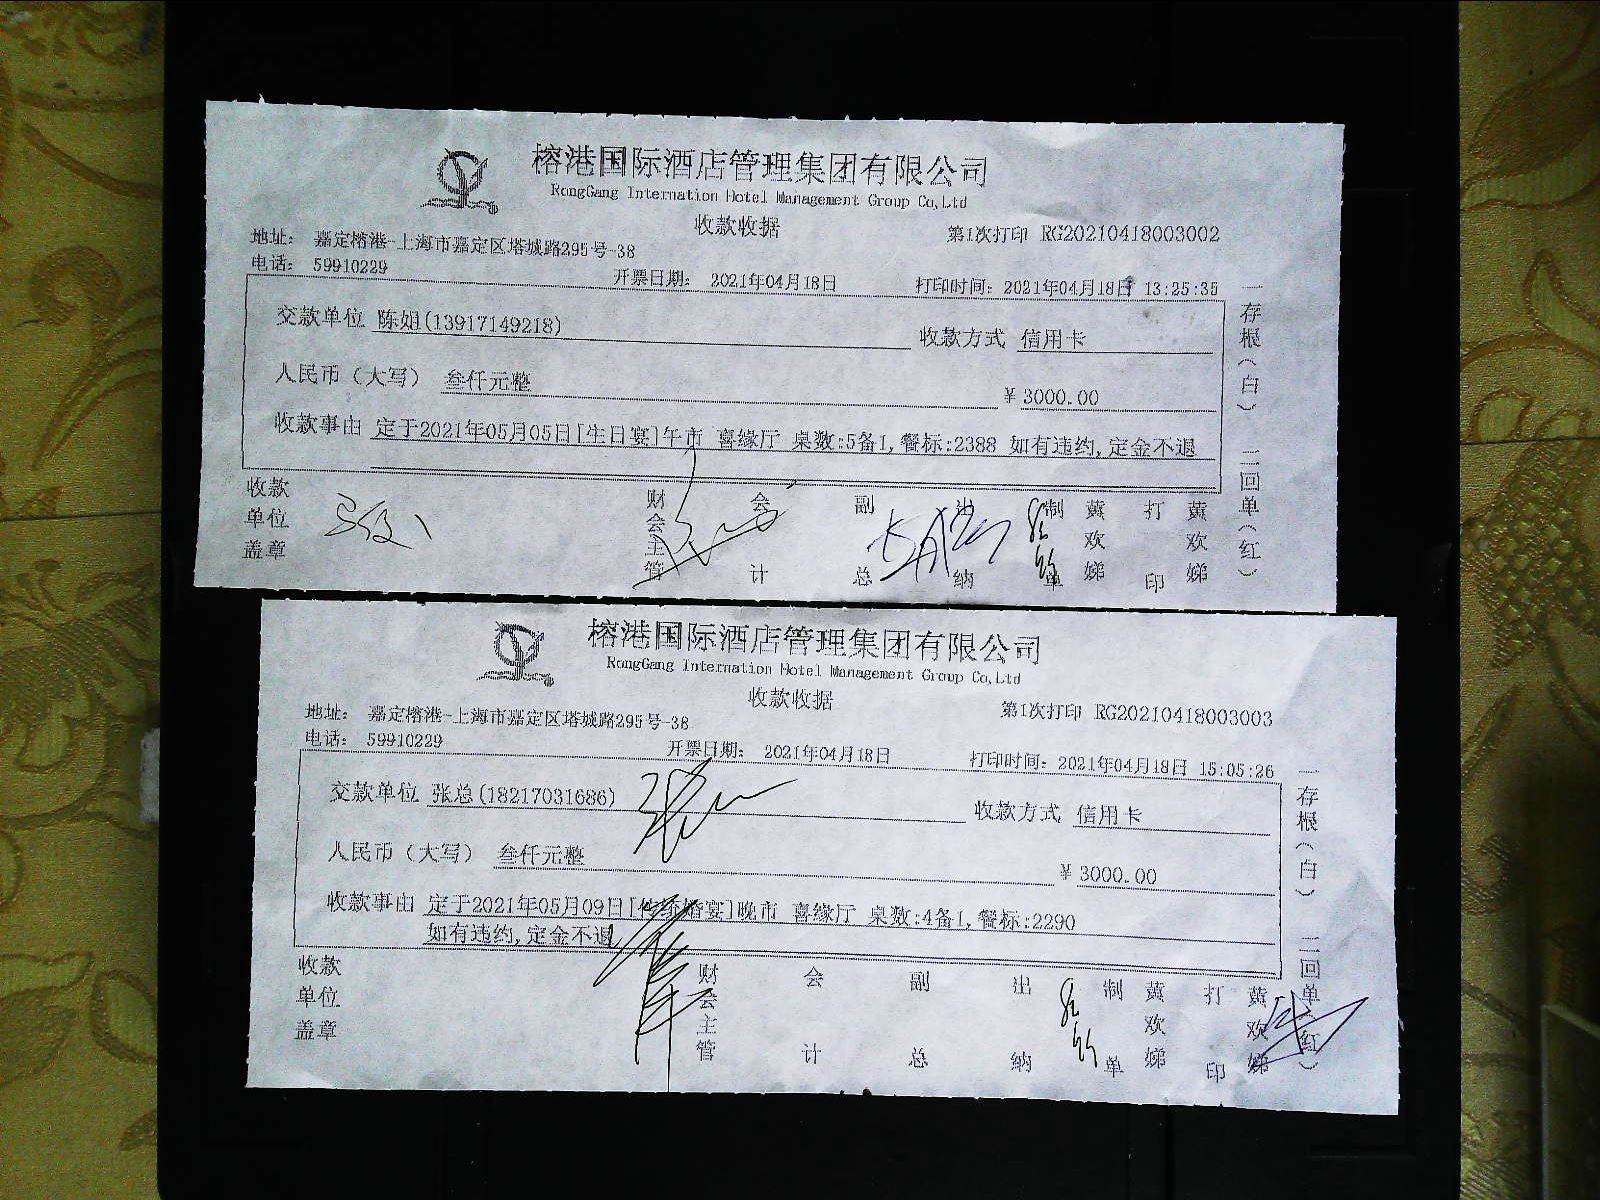 榕港国际酒店管理集团有限公司
RongGang Internation Hotel Management Group Co,Ltd
收款收据
地址： 嘉定榕港-上海市嘉定区塔城路295号-38
第1次打印 RG20210418003002
电话： 59910229
开票日期： 2021年04月18日
打印时间：2021年04月18日 13:25:35
交款单位 陈姐(13917149218)
收款方式 信用卡
人民币（大写） 叁仟元整
¥ 3000.00
收款事由 定于2021年05月05日[生日宴]午市 喜缘厅 桌数:5备1,餐标:2388 如有违约,定金不退
收款单位盖章
财会主管
会计
副总
出纳
制单
黄欢娣
打印
黄欢娣
一存根（白） 二回单（红）
榕港国际酒店管理集团有限公司
RongGang Internation Hotel Management Group Co,Ltd
收款收据
地址： 嘉定榕港-上海市嘉定区塔城路295号-38
第1次打印 RG20210418003003
电话： 59910229
开票日期： 2021年04月18日
打印时间：2021年04月18日 15:05:26
交款单位 张总(18217031686)
收款方式 信用卡
人民币（大写） 叁仟元整
¥ 3000.00
收款事由 定于2021年05月09日[婚宴]晚市 喜缘厅 桌数:4备1,餐标:2290
如有违约,定金不退
收款单位盖章
财会主管
会计
副总
出纳
制单
黄欢娣
打印
黄欢娣
一存根（白） 二回单（红）